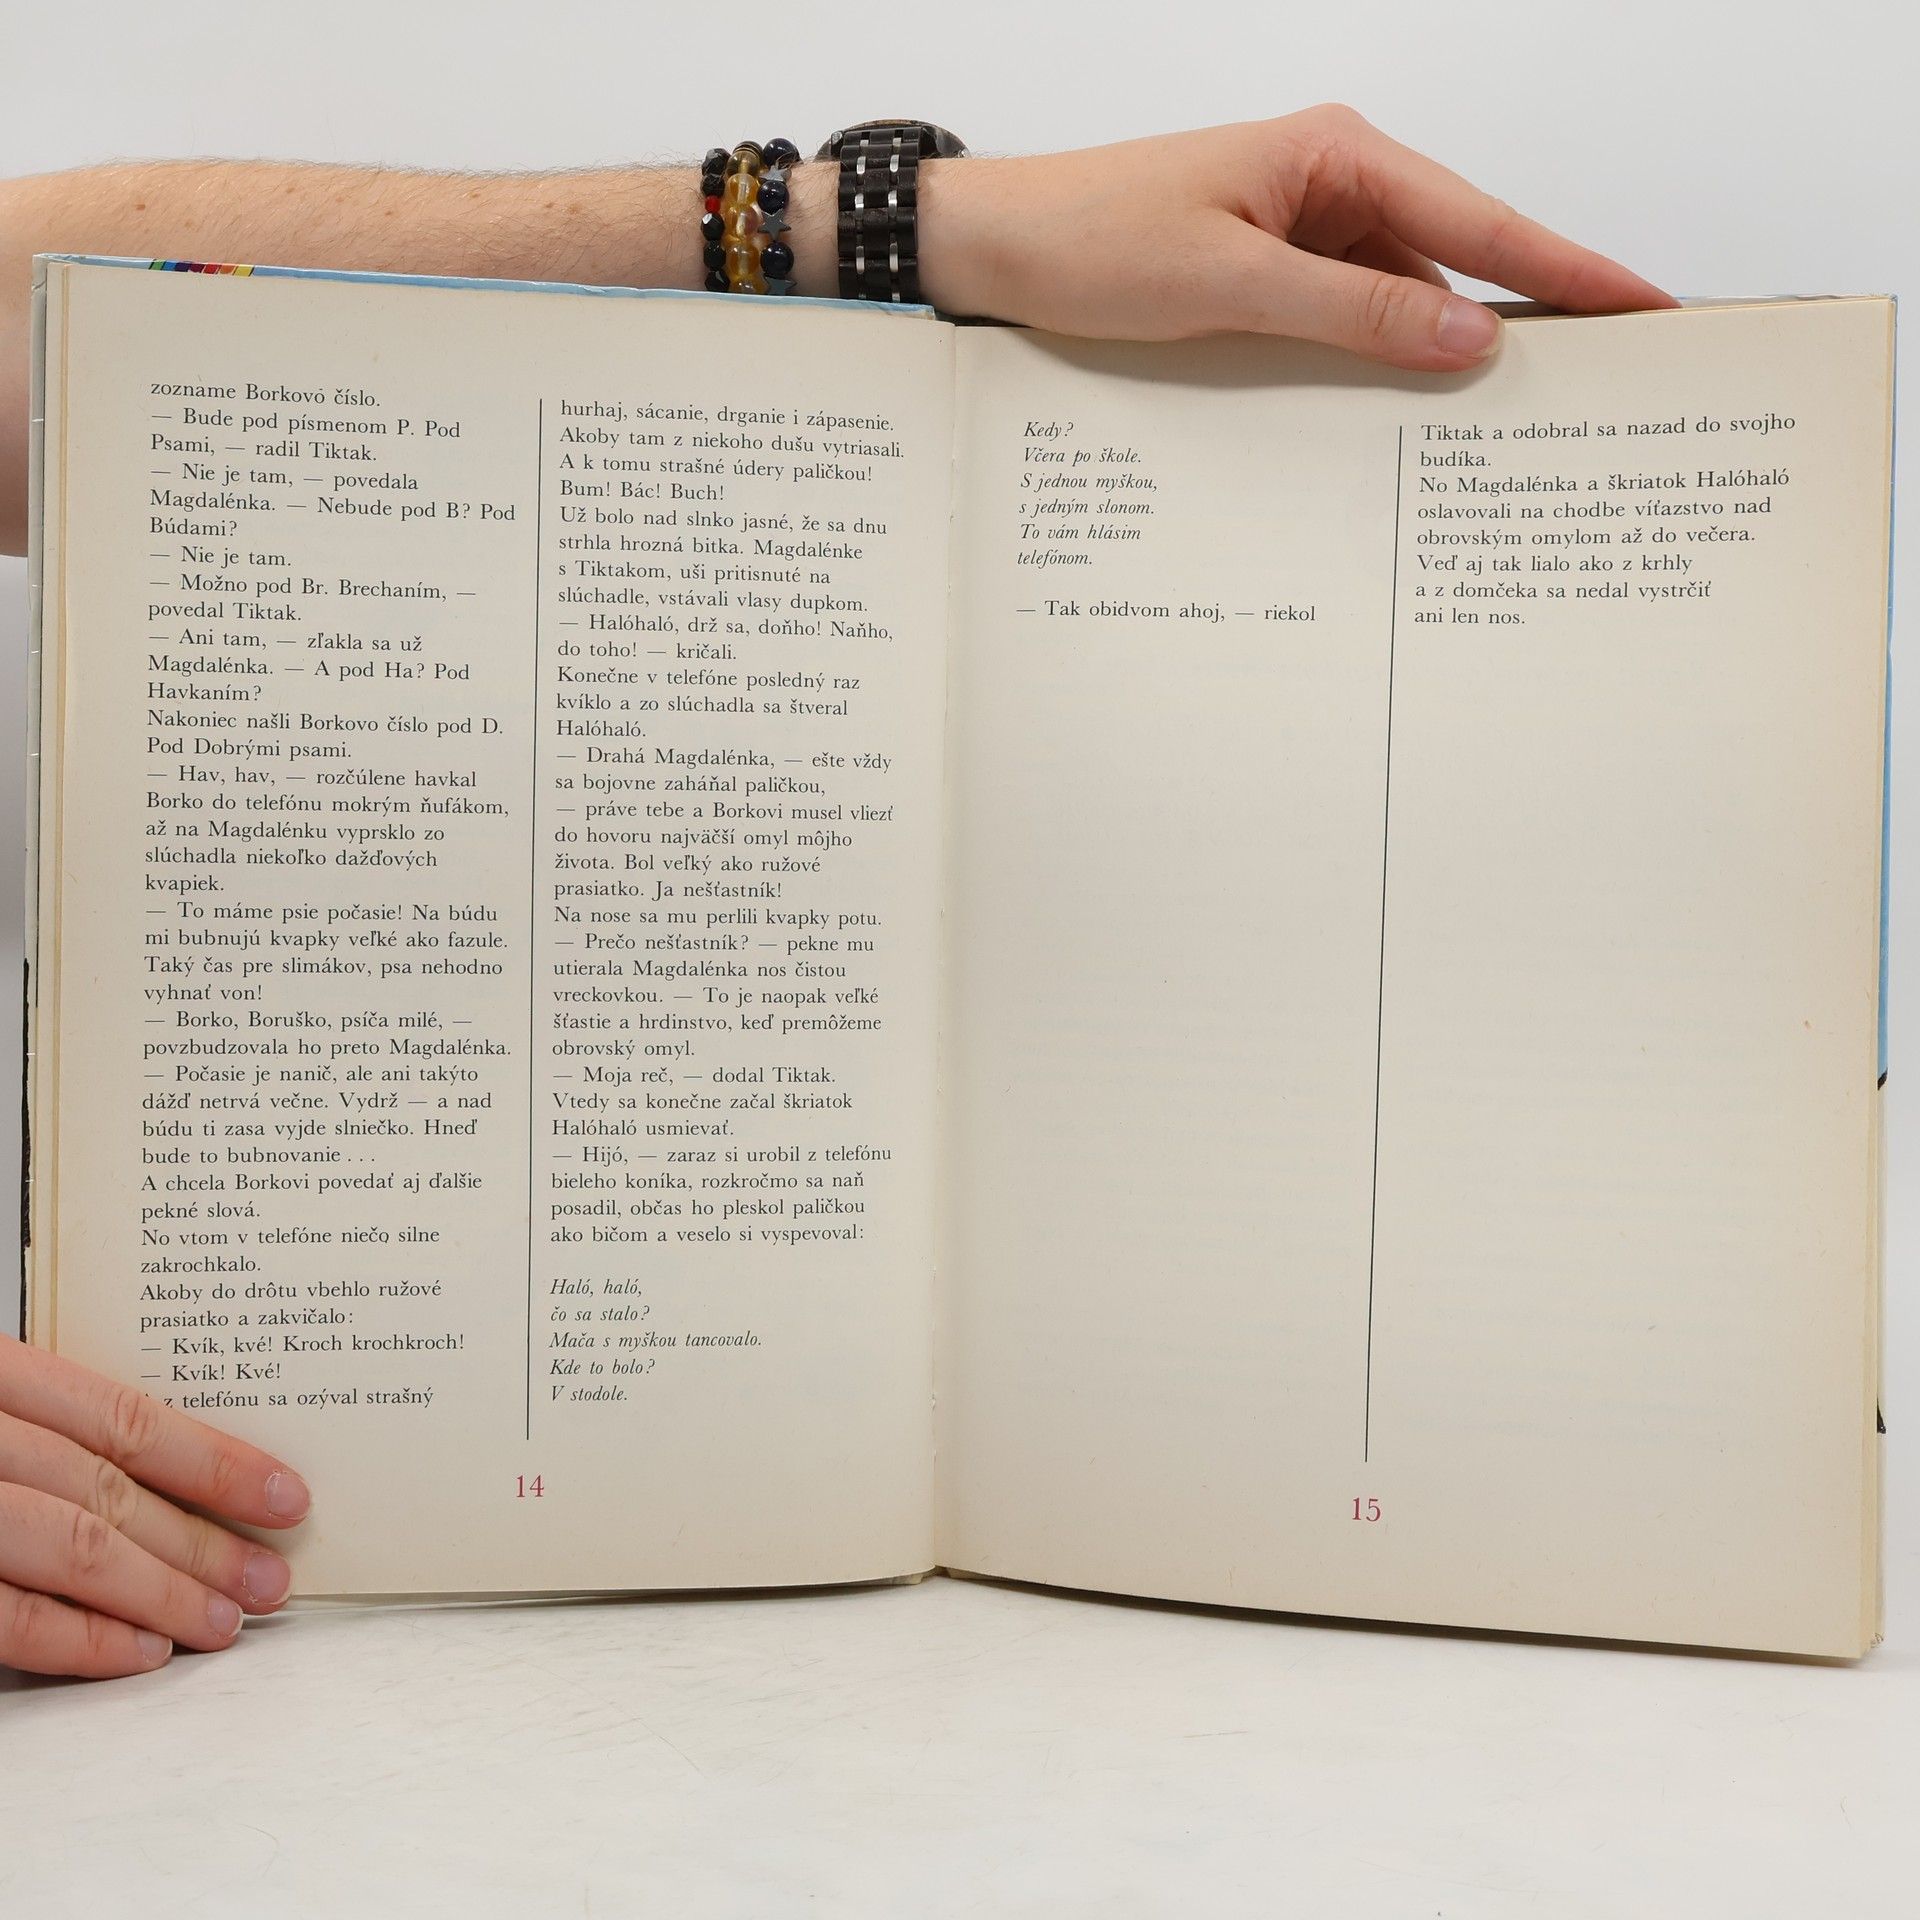 zozname Borkovo číslo.
— Bude pod písmenom P. Pod
Psami, — radil Tiktak.
— Nie je tam, — povedala
Magdalénka. — Nebude pod B? Pod
Búdami?
— Nie je tam.
— Možno pod Br. Brechaním, —
povedal Tiktak.
— Ani tam, — zľakla sa už
Magdalénka. — A pod Ha? Pod
Havkaním?
Nakoniec našli Borkovo číslo pod D.
Pod Dobrými psami.
— Hav, hav, — rozčúlene havkal
Borko do telefónu mokrým ňufákom,
až na Magdalénku vyprsklo zo
slúchadla niekoľko dažďových
kvapiek.
— To máme psie počasie! Na búdu
mi bubnujú kvapky veľké ako fazule.
Taký čas pre slimákov, psa nehodno
vyhnať von!
— Borko, Boruško, psíča milé, —
povzbudzovala ho preto Magdalénka.
— Počasie je nanič, ale ani takýto
dážď netrvá večne. Vydrž — a nad
búdu ti zasa vyjde slniečko. Hneď
bude to bubnovanie . . .
A chcela Borkovi povedať aj ďalšie
pekné slová.
No vtom v telefóne niečo silne
zakrochkalo.
Akoby do drôtu vbehlo ružové
prasiatko a zakvičalo:
— Kvík, kvé! Kroch krochkroch!
— Kvík! Kvé!
z telefónu sa ozýval strašný
hurhaj, sácanie, drganie i zápasenie.
Akoby tam z niekoho dušu vytriasali.
A k tomu strašné údery paličkou!
Bum! Bác! Buch!
Už bolo nad slnko jasné, že sa dnu
strhla hrozná bitka. Magdalénke
s Tiktakom, uši pritisnuté na
slúchadle, vstávali vlasy dupkom.
— Halóhaló, drž sa, doňho! Naňho,
do toho! — kričali.
Konečne v telefóne posledný raz
kvíklo a zo slúchadla sa štveral
Halóhaló.
— Drahá Magdalénka, — ešte vždy
sa bojovne zaháňal paličkou,
— práve tebe a Borkovi musel vliezť
do hovoru najväčší omyl môjho
života. Bol veľký ako ružové
prasiatko. Ja nešťastník!
Na nose sa mu perlili kvapky potu.
— Prečo nešťastník? — pekne mu
utierala Magdalénka nos čistou
vreckovkou. — To je naopak veľké
šťastie a hrdinstvo, keď premôžeme
obrovský omyl.
— Moja reč, — dodal Tiktak.
Vtedy sa konečne začal škriatok
Halóhaló usmievať.
— Hijó, — zaraz si urobil z telefónu
bieleho koníka, rozkročmo sa naň
posadil, občas ho pleskol paličkou
ako bičom a veselo si vyspevoval:
Haló, haló,
čo sa stalo?
Mača s myškou tancovalo.
Kde to bolo?
V stodole.
14
Kedy?
Včera po škole.
S jednou myškou,
s jedným slonom.
To vám hlásim
telefónom.
— Tak obidvom ahoj, — riekol
Tiktak a odobral sa nazad do svojho
budíka.
No Magdalénka a škriatok Halóhaló
oslavovali na chodbe víťazstvo nad
obrovským omylom až do večera.
Veď aj tak lialo ako z krhly
a z domčeka sa nedal vystrčiť
ani len nos.
15